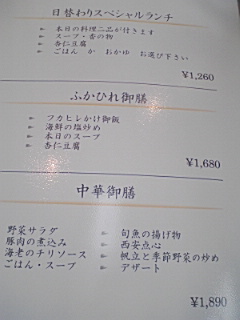 日替わりスペシャルランチ
本日の料理二品が付きます
スープ・香の物
杏仁豆腐
ごはん か おかゆ お選び下さい
¥1,260
ふかひれ御膳
フカヒレかけ御飯
海鮮の塩炒め
本日のスープ
杏仁豆腐
¥1,680
中華御膳
野菜サラダ
豚肉の煮込み
海老のチリソース
ごはん・スープ
旬魚の揚げ物
西安点心
帆立と季節野菜の炒め
デザート
¥1,890